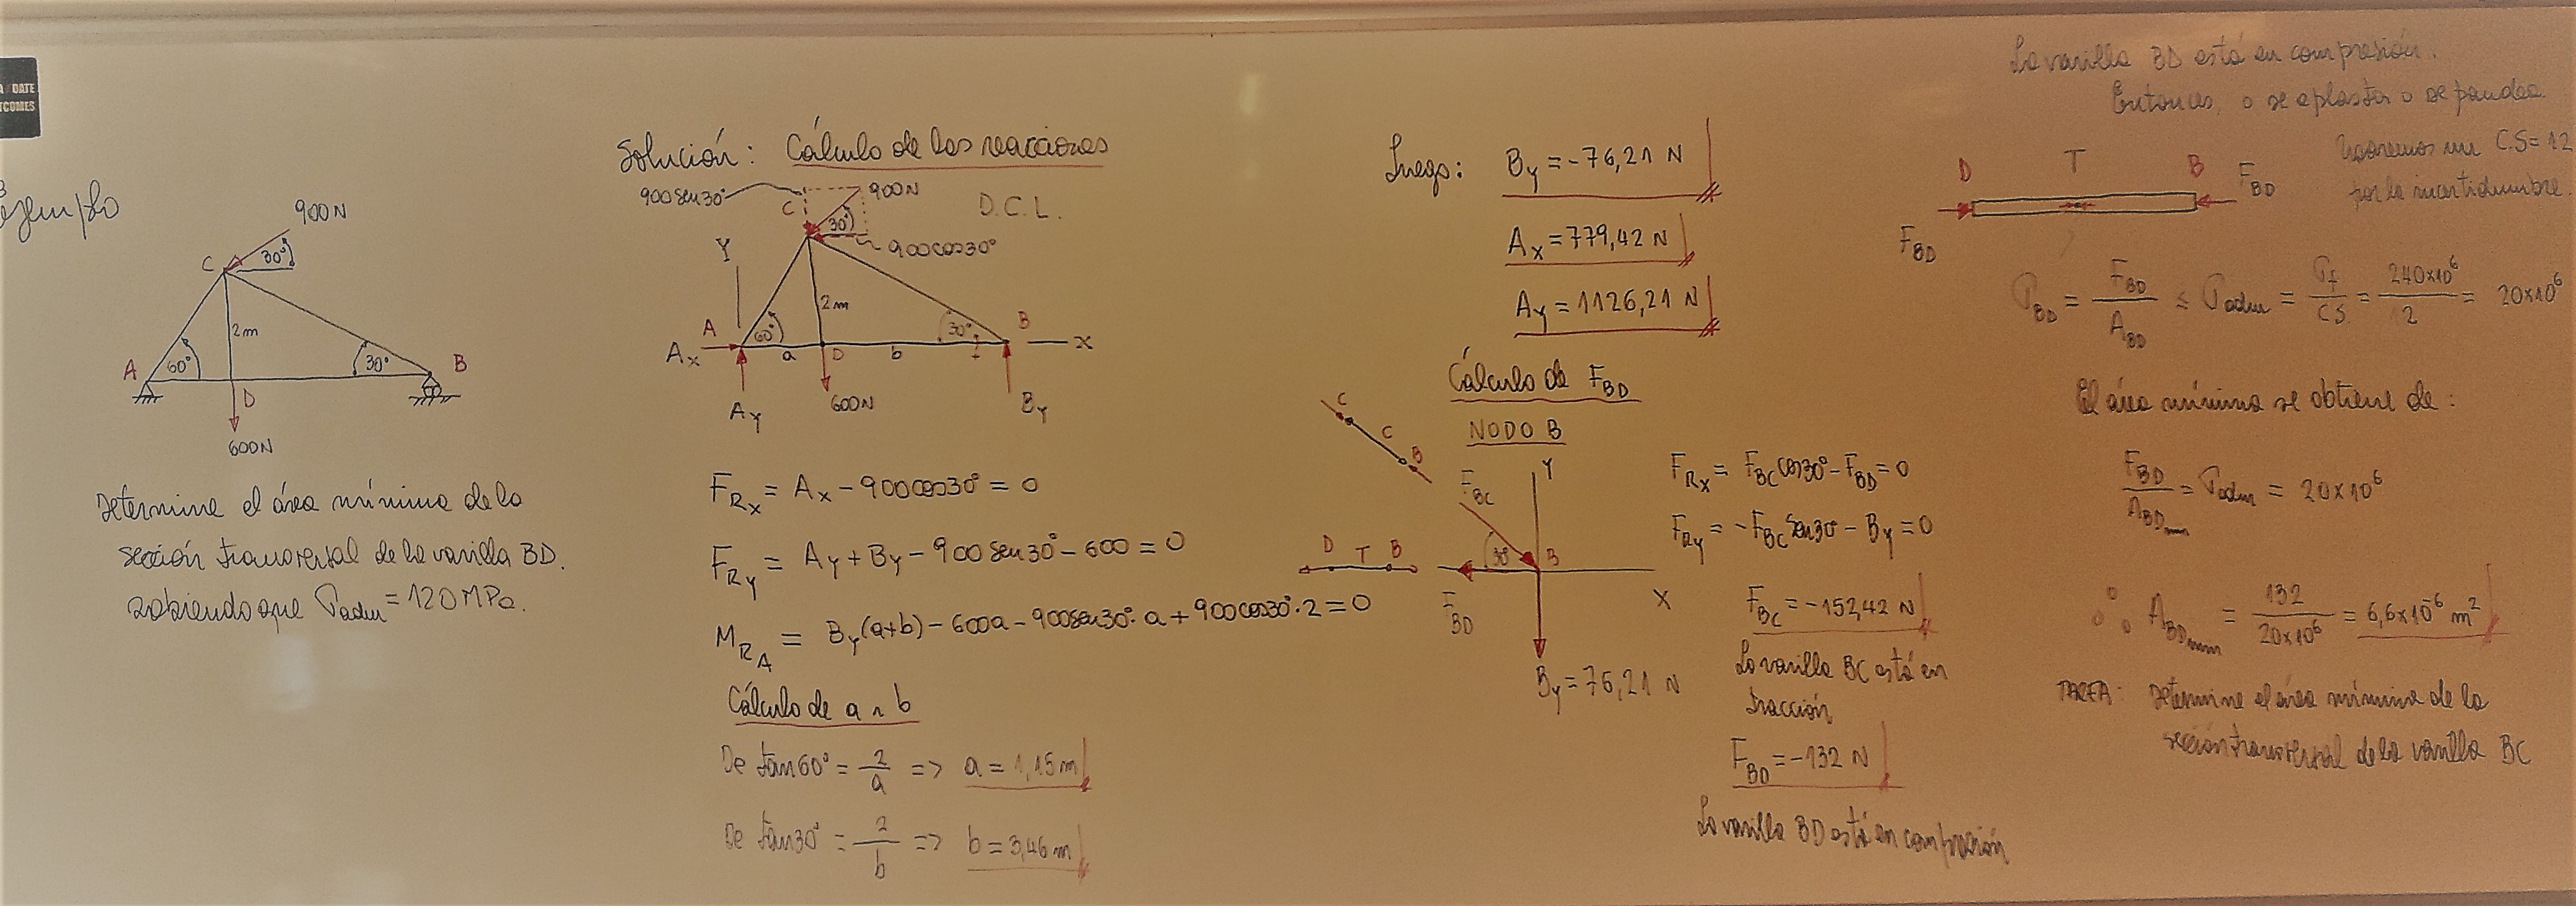 A DATE
TCOMES
Ejemplo
900N
30°
C
2m
A
60°
30°
B
D
600N
Determine el área mínima de la
sección transversal de la varilla BD.
sabiendo que σadm = 120 MPa.
Solución: Cálculo de las reacciones
900 sen 30°
900N
D.C.L.
C
30°
900 cos 30°
Y
2m
A
60°
30°
B
x
Ax
a
D
b
Ay
600N
By
FRx = Ax - 900 cos 30° = 0
FRy = Ay + By - 900 sen 30° - 600 = 0
MRA = By (a+b) - 600a - 900 sen 30° · a + 900 cos 30° · 2 = 0
Cálculo de a ∧ b
De tan 60° = 2/a => a = 1,15 m
De tan 30° = 2/b => b = 3,46 m
Luego: By = -76,21 N
Ax = 779,42 N
Ay = 1126,21 N
Cálculo de FBD
NODO B
C
C
B
FBC
Y
D
T
B
30°
B
FBD
X
By = 76,21 N
FRx = FBC cos 30° - FBD = 0
FRy = -FBC sen 30° - By = 0
FBC = -152,42 N
La varilla BC está en
tracción
FBD = -132 N
La varilla BD está en compresión
La varilla BD está en compresión.
Entonces, o se aplasta o se pandea.
Usaremos un C.S = 12
por la incertidumbre
D
T
B
FBD
FBD
σBD = FBD/ABD ≤ σadm = σf/CS = 240x10⁶/12 = 20x10⁶
El área mínima se obtiene de:
FBD/ABDmin = σadm = 20x10⁶
∴ ABDmin = 132/20x10⁶ = 6,6x10⁻⁶ m²
TAREA: Determine el área mínima de la
sección transversal de la varilla BC